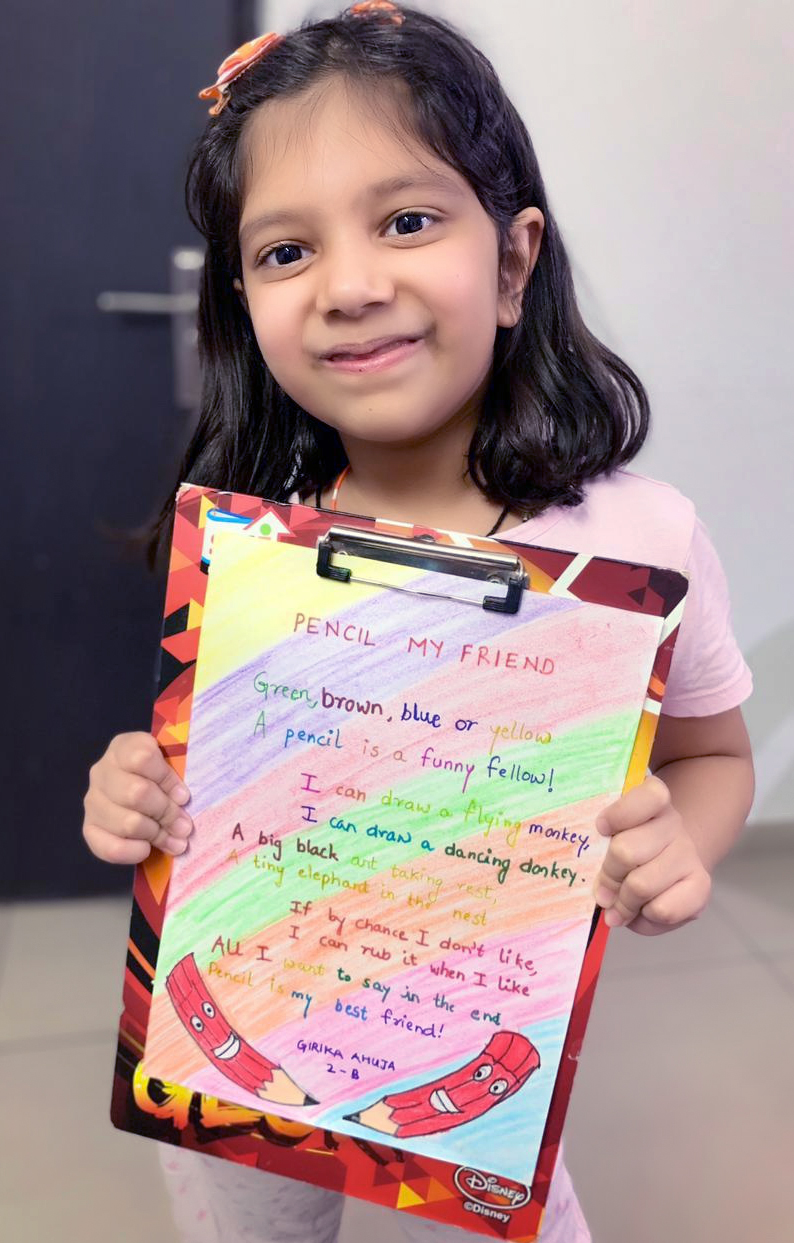 PENCIL MY FRIEND
Green, brown, blue or yellow
A pencil is a funny fellow!
I can draw a flying monkey,
I can draw a dancing donkey.
A big black ant taking rest,
A tiny elephant in the nest
If by chance I don't like,
I can rub it when I like
All I want to say in the end
Pencil is my best friend!
GIRIKA AHUJA
2-B
DISNEY
©Disney